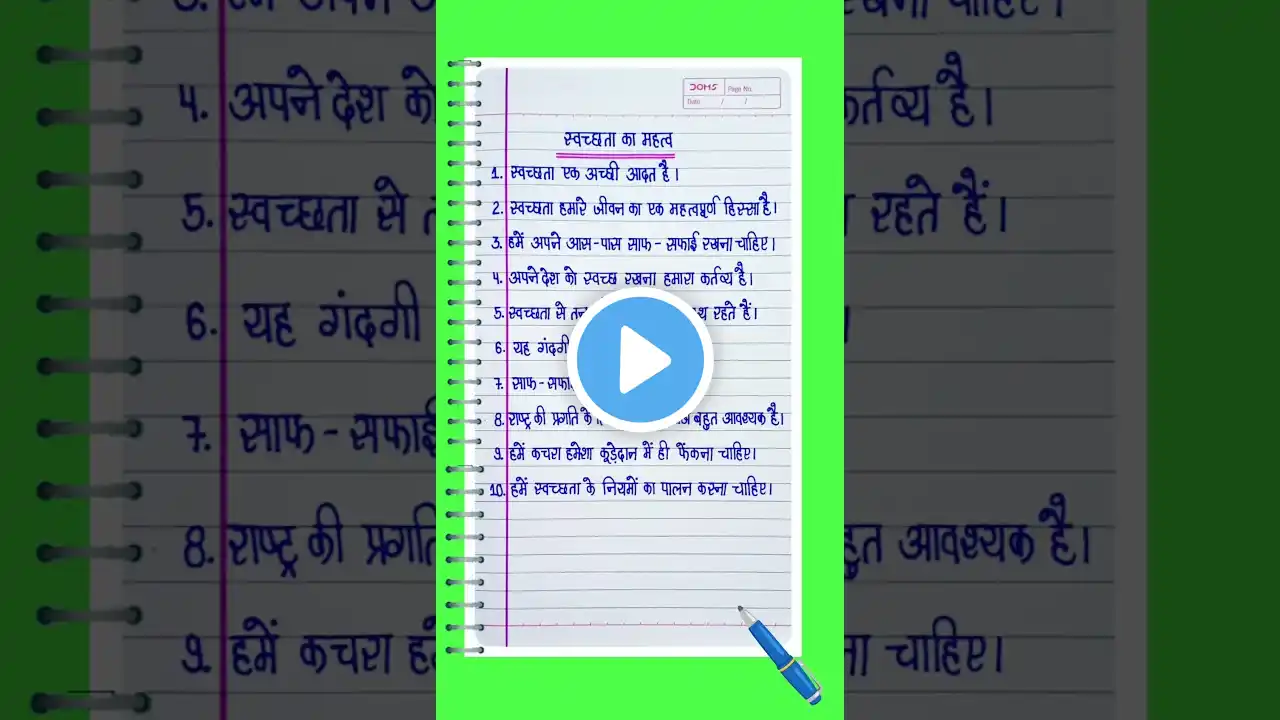 JOMS
Page No.
Date / /
स्वच्छता का महत्व
1. स्वच्छता एक अच्छी आदत है।
2. स्वच्छता हमारे जीवन का एक महत्वपूर्ण हिस्सा है।
3. हमें अपने आस-पास साफ-सफाई रखना चाहिए।
4. अपने देश को स्वच्छ रखना हमारा कर्तव्य है।
5. स्वच्छता से रहते हैं।
6. यह गंदगी
7. साफ-सफाई
8. राष्ट्र की प्रगति के बहुत आवश्यक है।
9. हमें कचरा हमेशा कूड़ेदान में ही फेंकना चाहिए।
10. हमें स्वच्छता के नियमों का पालन करना चाहिए।